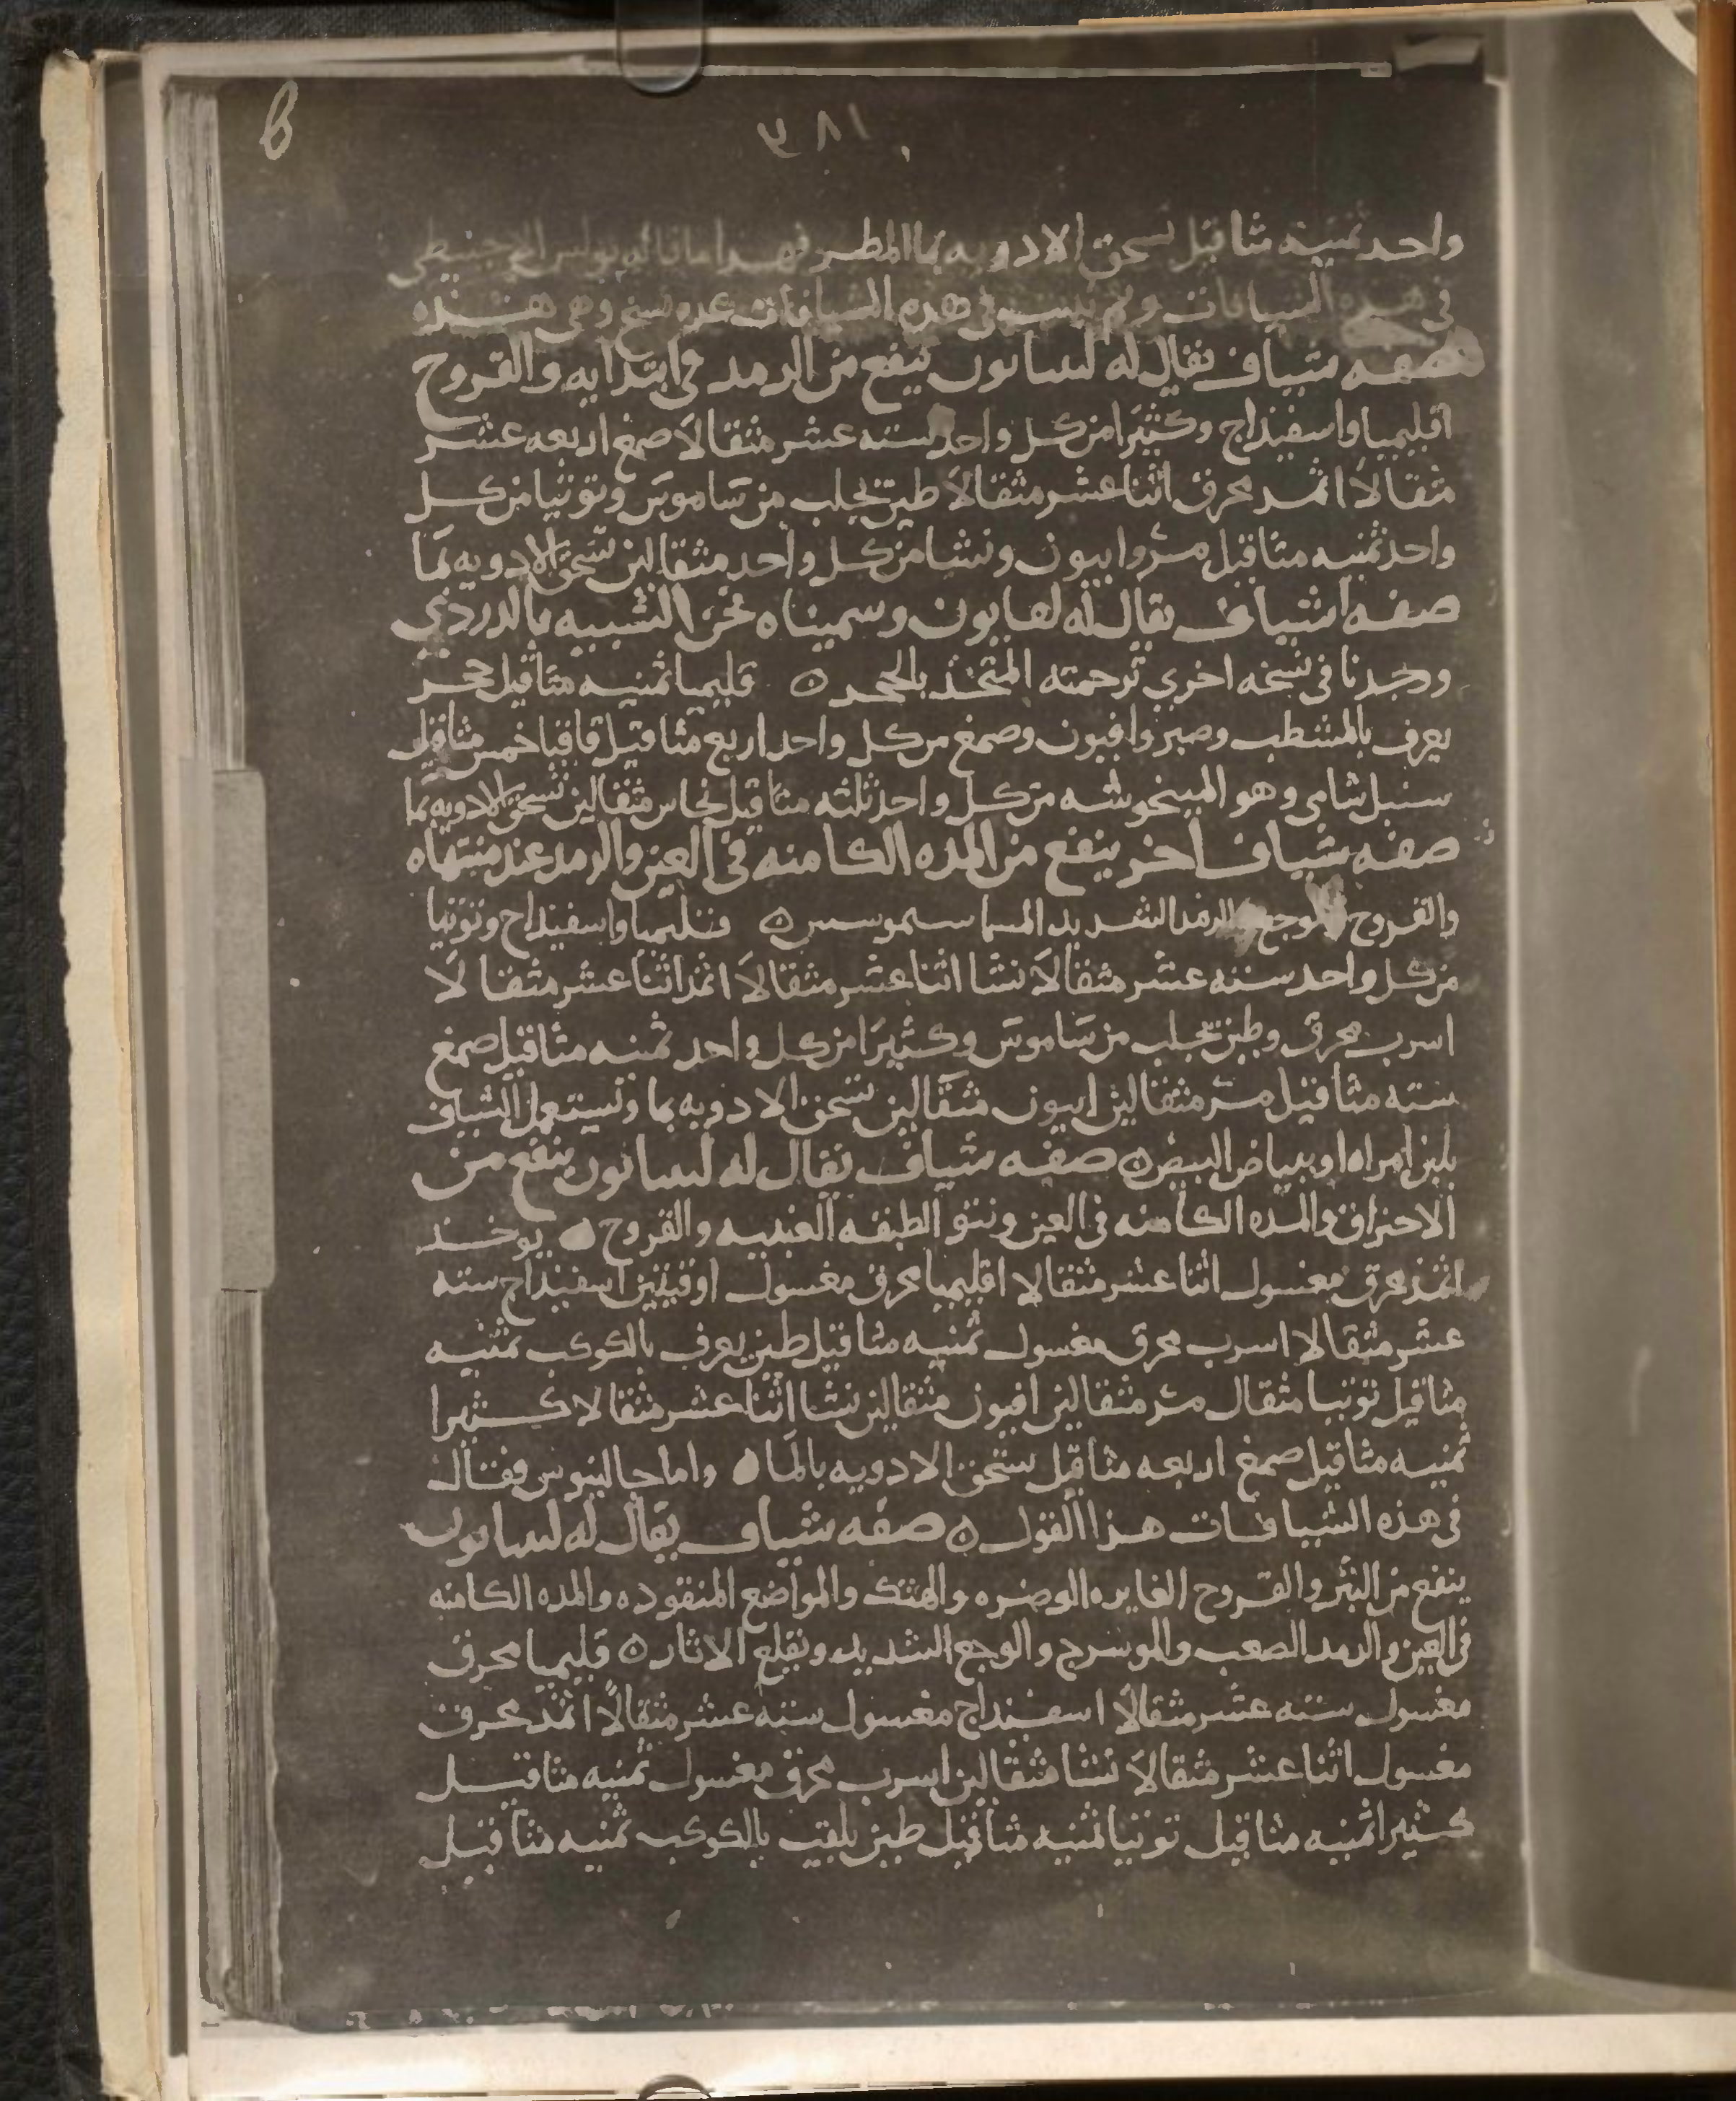 ١٨١
واحد ثمنيه مثاقيل تسحق الادويه بما المطر فهدا ما قاله بولس الاجنيطى
فى هذه الشيافات وهى هذه
صفه شياف يقال له لسانون ينفع من الرمد فى ابتدايه والقروح
اقليميا واسفيذاج وكثيرا من كل واحد سته عشر مثقالا صمغ اربعه عشر
مثقالا اثمد محرق اثنا عشر مثقالا طين يجلب من ساموس وتوتيا من كل
واحد ثمنيه مثاقيل مر وابيون ونشا من كل واحد مثقالين تسحق الادويه بما
صفه اشياف يقال له لعابون وسميناه نحن الشبيه بالدردي
وجدنا فى نسخه اخري ترجمته المتخذ بالحجر ه قليميا ثمنيه مثاقيل حجر
يعرف بالمشطب وصبر وافيون وصمغ من كل واحد اربع مثاقيل قاقيا خمس مثاقيل
سنبل شامى وهو المبنخوشه من كل واحد ثلثه مثاقيل نحاس مثقالين تسحق الادويه بما
صفه شياف اخر ينفع من المده الكامنه فى العين والرمد عند منتهاه
والقروح والوجع والرمد الشديد المسما سموسس ه قليميا واسفيذاج وتوتيا
من كل واحد سته عشر مثقالا نشا اثنا عشر مثقالا اثمد اثنا عشر مثقالا
اسرب محرق وطين يجلب من ساموس وكثيرا من كل واحد ثمنيه مثاقيل صمغ
سته مثاقيل مر مثقالين ابيون مثقالين تسحق الادويه بما وتستعمل الشياف
بلبن امراه او ببياض البيض ه صفه شياف يقال له لسانون ينفع من
الاحتراق والمده الكامنه فى العين ونتو الطبقه العنبيه والقروح ه يوخذ
اثمد محرق مغسول اثنا عشر مثقالا اقليميا محرق مغسول اوقيتين اسفيذاج سته
عشر مثقالا اسرب محرق مغسول ثمنيه مثاقيل طين يعرف بالكوكب ثمنيه
مثاقيل توتيا مثقال مر مثقالين افيون مثقالين نشا اثنا عشر مثقالا كثيرا
ثمنيه مثاقيل صمغ اربعه مثاقيل تسحق الادويه بالما ه واما جالينوس فقال
فى هذه الشيافات هذا القول ه صفه شياف يقال له لسانون
ينفع من البثر والقروح الغايره الوضره والهتك والمواضع المنقوده والمده الكامنه
فى العين والرمد الصعب والموسرج والوجع الشديد ويقلع الاثار ه قليميا محرق
مغسول سته عشر مثقالا اسفيذاج مغسول سته عشر مثقالا اثمد محرق
مغسول اثنا عشر مثقالا نشا مثقالين اسرب محرق مغسول ثمنيه مثاقيل
كثيرا ثمنيه مثاقيل توتيا ثمنيه مثاقيل طين يلقب بالكوكب ثمنيه مثاقيل